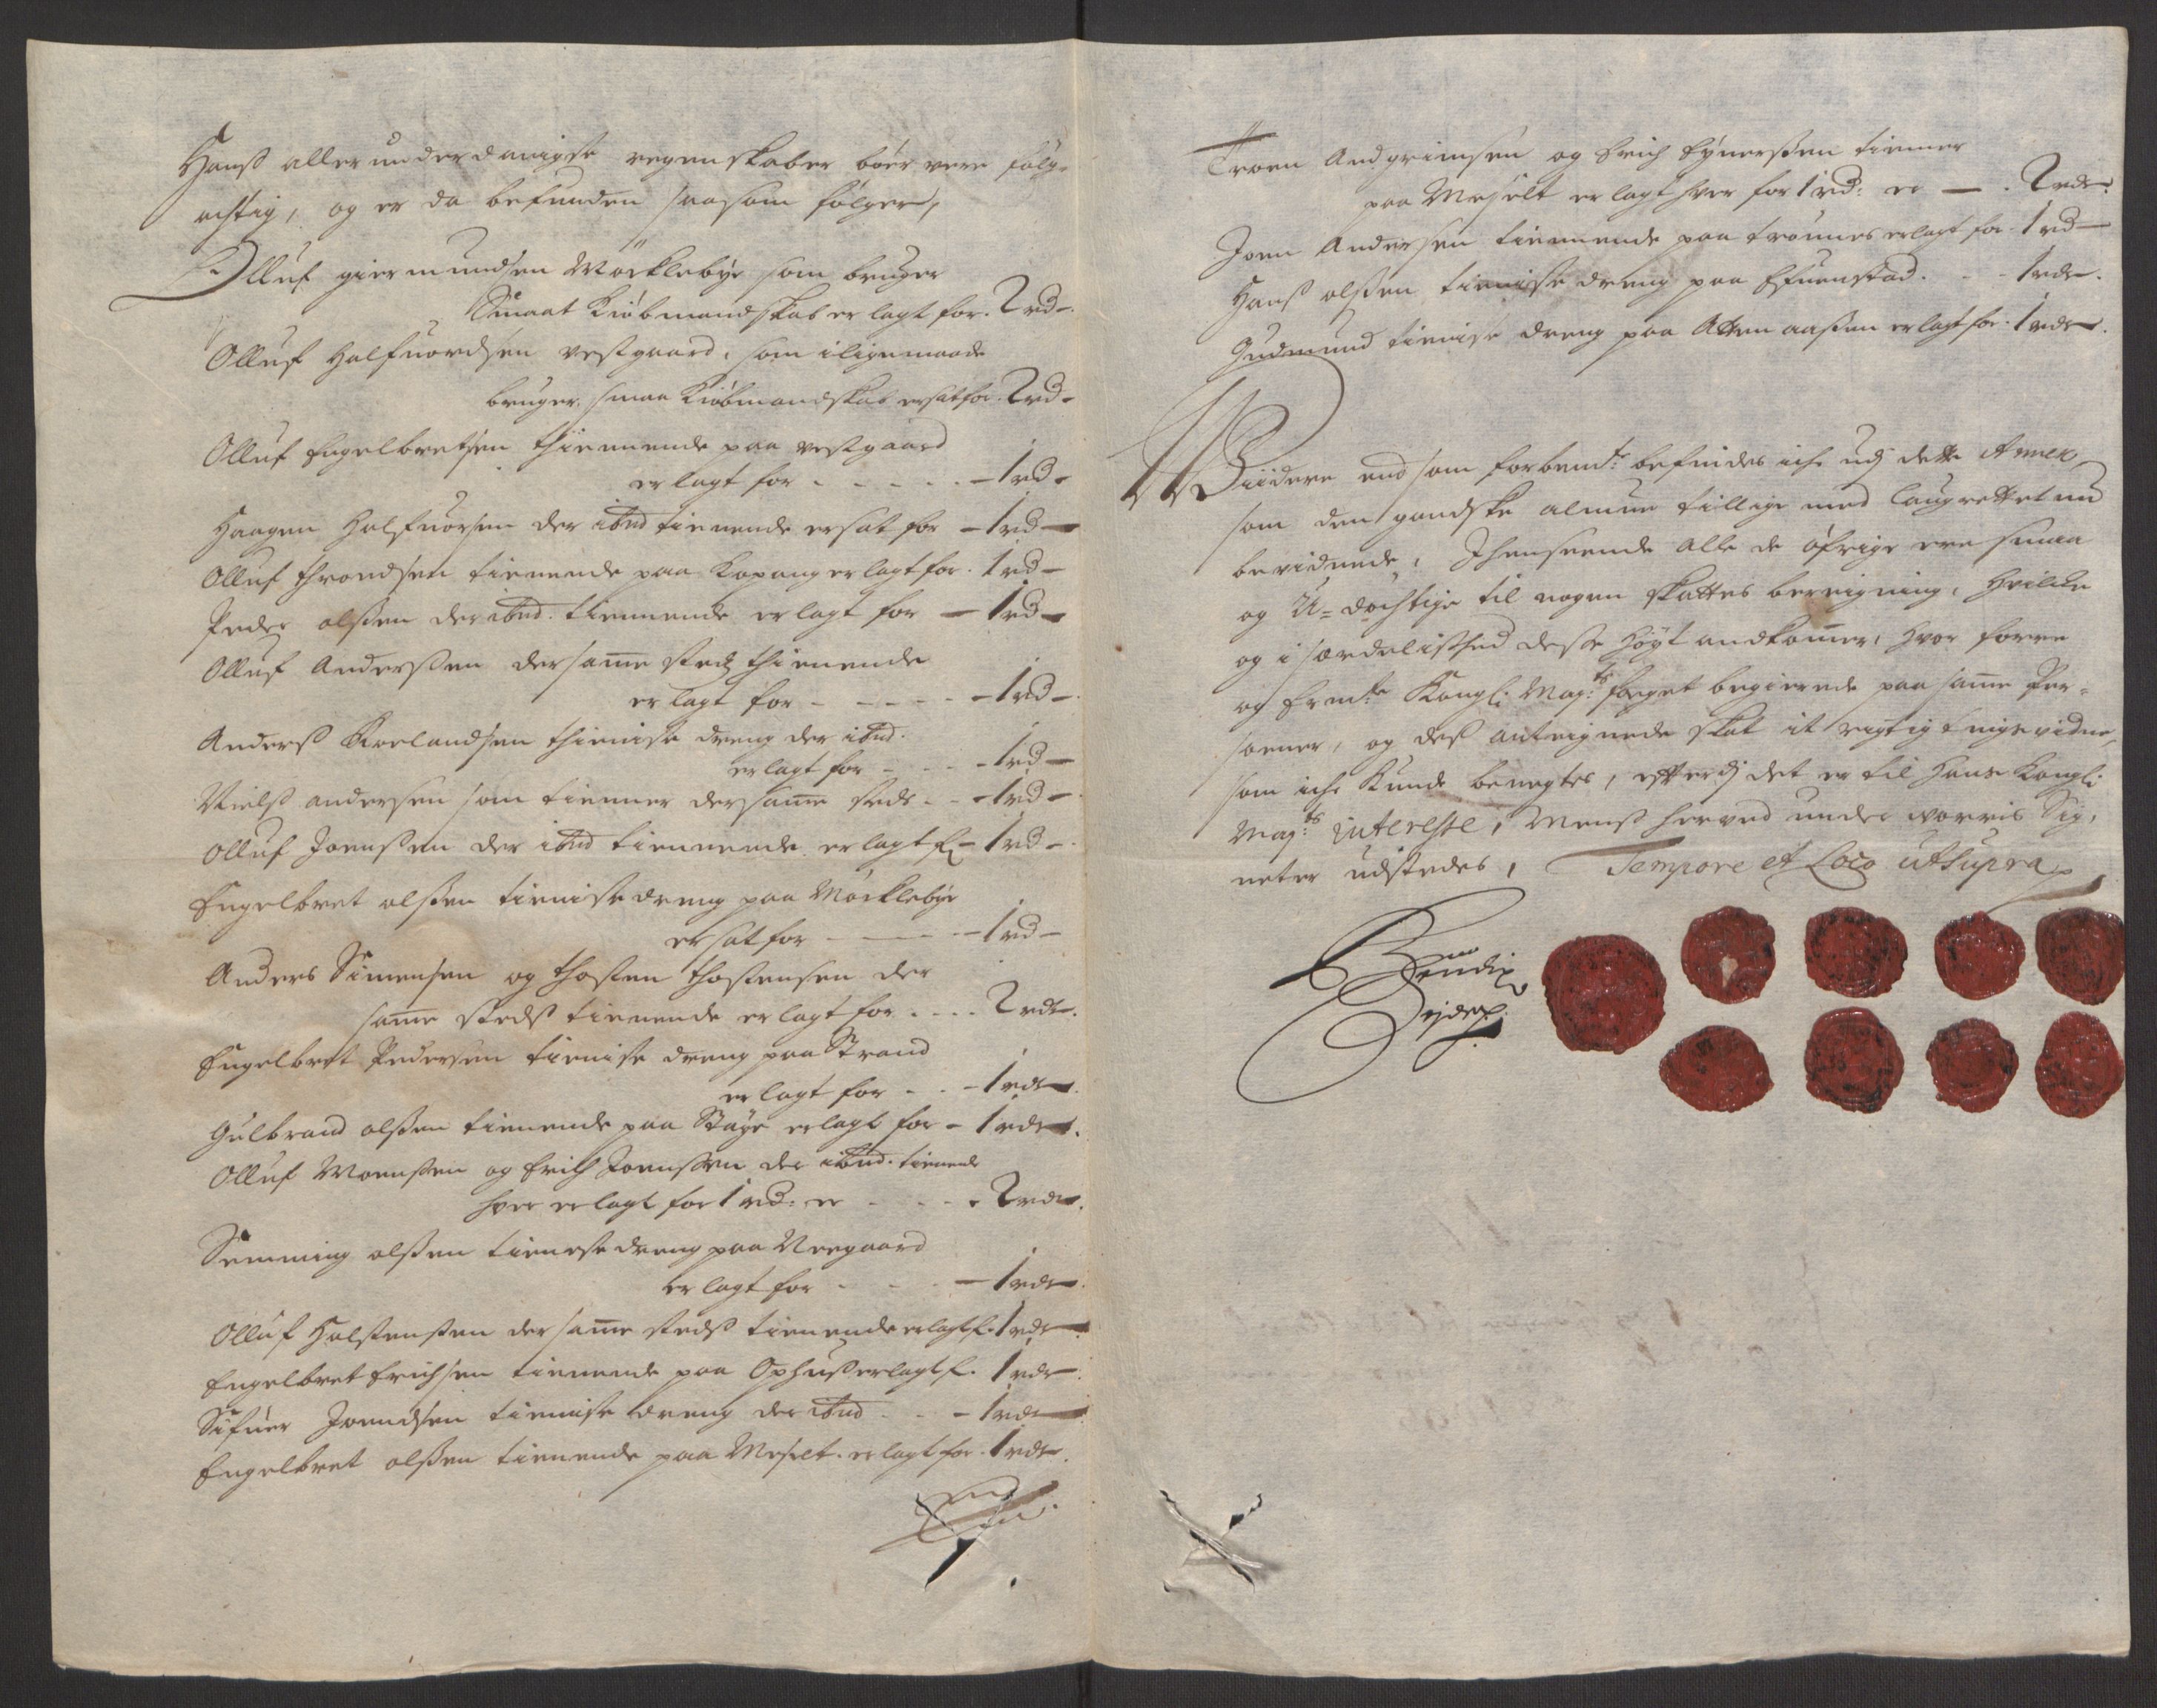 Hans allerunderdanigste regenskaber bør vere følg-
achtig, og er da befunden saasom følger,
Olluf giermundsen Møcklebye som bruger
Smaat Kiøbmandskab erlagt for. 2 rd -
Olluf Halfuordsen vestgaard, som iligemaade
bruger smaa Kiøbmandskab ersat for 2 rd -
Olluf Engelbretsen thienende paa vestgaard
erlagt for - - - - - 1 rd -
Haagen Halfuorsen der ibnd tienende ersat for - 1 rd -
Olluf throndsen tienende paa Kopang erlagt for. 1 rd -
Peder olsen der ibnd. tienende erlagt for - 1 rd -
Olluf Andersen dersamme sted thienende
erlagt for - - - - - 1 rd -
Anders Roelandsen thienise dreng der ibnd.
erlagt for - - - 1 rd -
Niels andersen som tienner dersamme steds - - 1 rd -
Olluf Joensen der ibnd tiennende erlagt f. 1 rd -
Engelbret olsen tienise dreng paa Møcklebye
ersat for - - - 1 rd -
Anders Simensen og thosten thostensen der
samme steds tienende erlagt for - - - 2 rdr.
Engelbret Pedersen tienise dreng paa Strand
erlagt for - - - 1 rdr.
Gulbrand olsen tienende paa Støye erlagt for - 1 rdr.
Olluf Moensen og Erich Joensen der ibnd. tienende
hver erlagt for 1 rd: er - - - 2 rdr.
Semming olsen tieneste dreng paa Neegaard
erlagt for - - - 1 rdr.
Olluf Halstensen der samme steds tienende erlagt f. 1 rdr
Engelbret Erichsen tienende paa Ophus erlagt f. 1 rdr.
Sifuer Joendsen tienise dreng der ibnd - - 1 rdr
Engelbret olsen tienende paa Messelt. erlagt for. 1 rdr.
Troen Andgrimsen og Erich Eynersen tienner
paa Messelt erlagt hver for 1 rd: er - . 2 rdr.
Joen Andersen tiennende paa trønnes erlagt for. 1 rd -
Hans olsen tienisse dreng paa Efuenstad. - - 1 rdr.
Gudmund tienise dreng paa Atten aassen erlagt for. 1 rdr.
Viidere end som forbemte befindes iche udj dette Annex
som den gandske almue tillige med laugrettet nu
bevidnede, Ihenseende alle de øfrige ere smaa
og U-dochtige til nogen skattes bereigning, hvilke
og i særdelished desse høyt andkommer, hvor forre
og Ermte Kongl: Mayts foeget begierede paa samme Per-
soener, og des anteignede skat it rigtig tingsvidne,
som iche Kunde benegtes, efterdj det er til Hans Kongl:
Mayts interesse, Mens herved under worris Sig-
neter udstedes, Tempore et Loco utsupra
Bendix